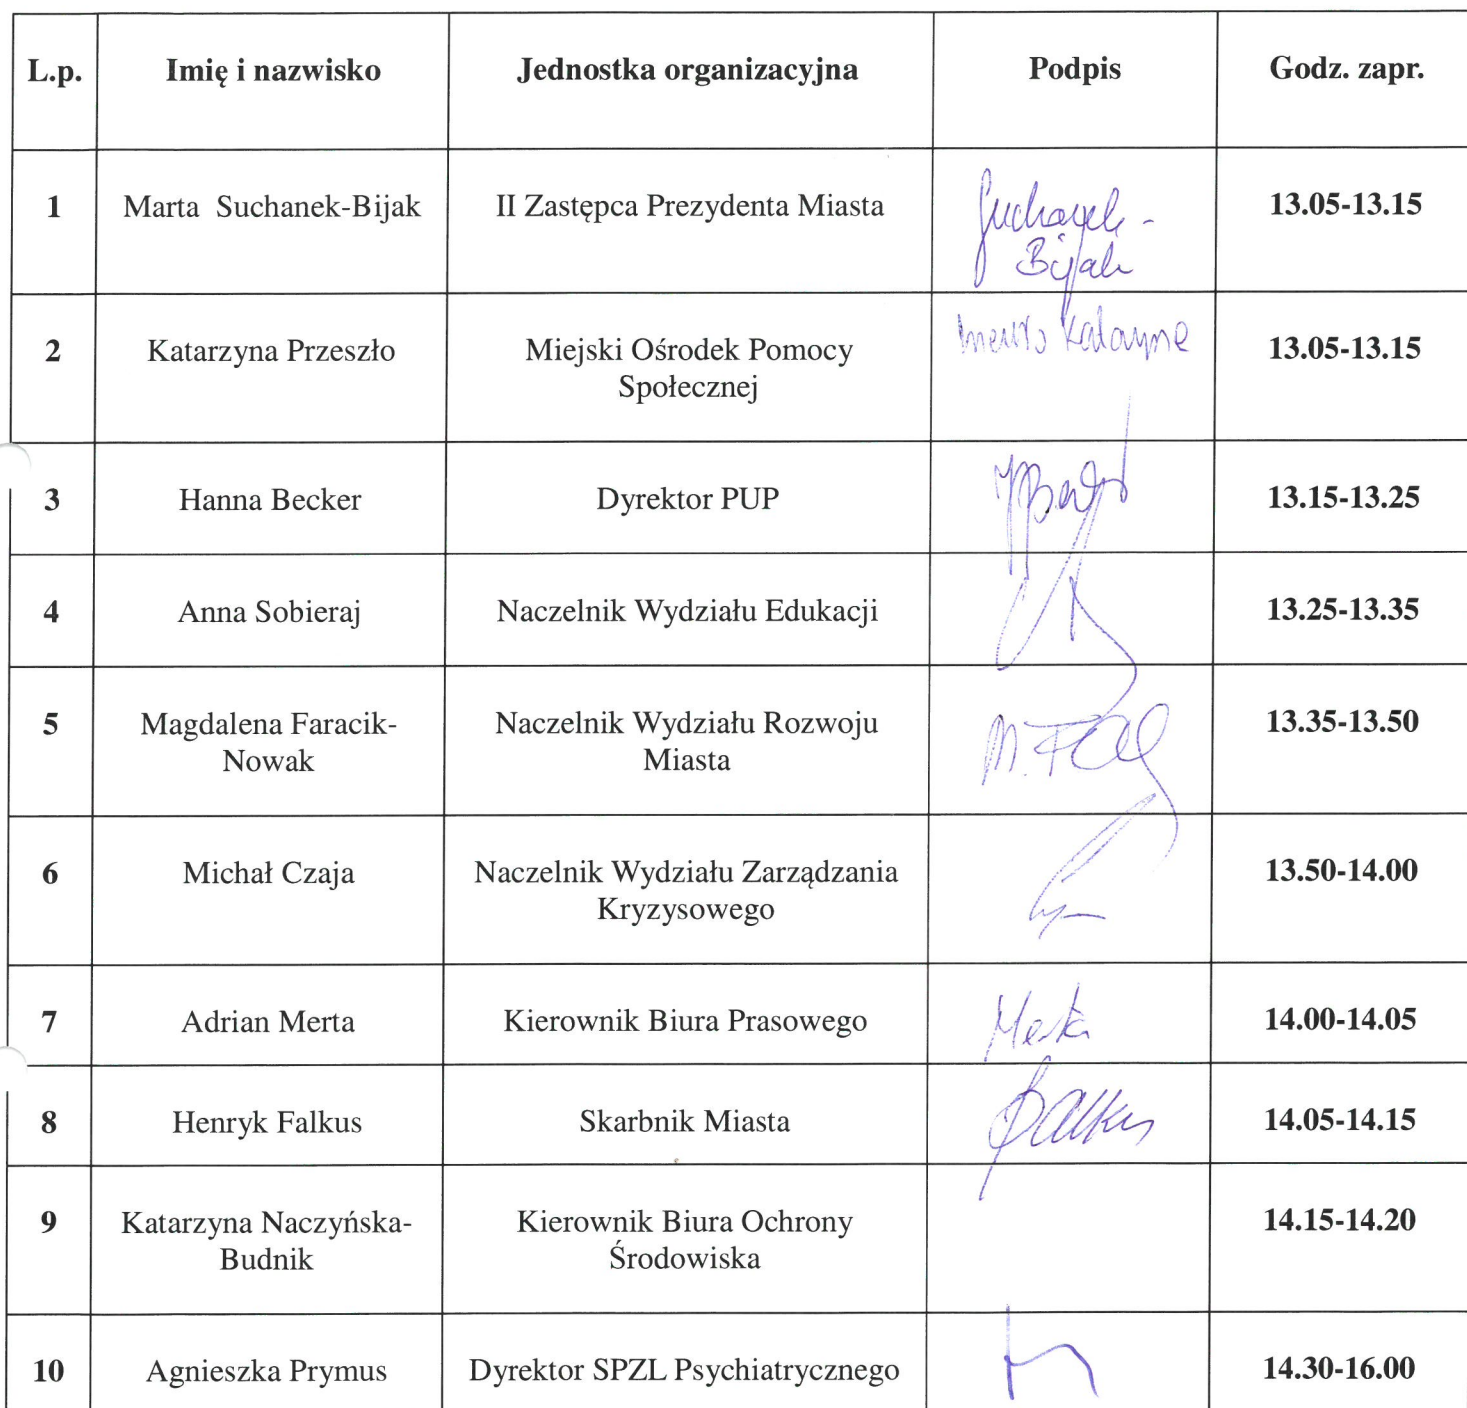 L.p. Imię i nazwisko Jednostka organizacyjna Podpis Godz. zapr.
1 Marta Suchanek-Bijak II Zastępca Prezydenta Miasta Suchanek- 13.05-13.15
Bijak
2 Katarzyna Przeszło Miejski Ośrodek Pomocy 13.05-13.15
Społecznej
3 Hanna Becker Dyrektor PUP 13.15-13.25
4 Anna Sobieraj Naczelnik Wydziału Edukacji 13.25-13.35
5 Magdalena Faracik- Naczelnik Wydziału Rozwoju 13.35-13.50
Nowak Miasta
6 Michał Czaja Naczelnik Wydziału Zarządzania 13.50-14.00
Kryzysowego
7 Adrian Merta Kierownik Biura Prasowego Merta 14.00-14.05
8 Henryk Falkus Skarbnik Miasta Falkus 14.05-14.15
9 Katarzyna Naczyńska- Kierownik Biura Ochrony 14.15-14.20
Budnik Środowiska
10 Agnieszka Prymus Dyrektor SPZL Psychiatrycznego 14.30-16.00